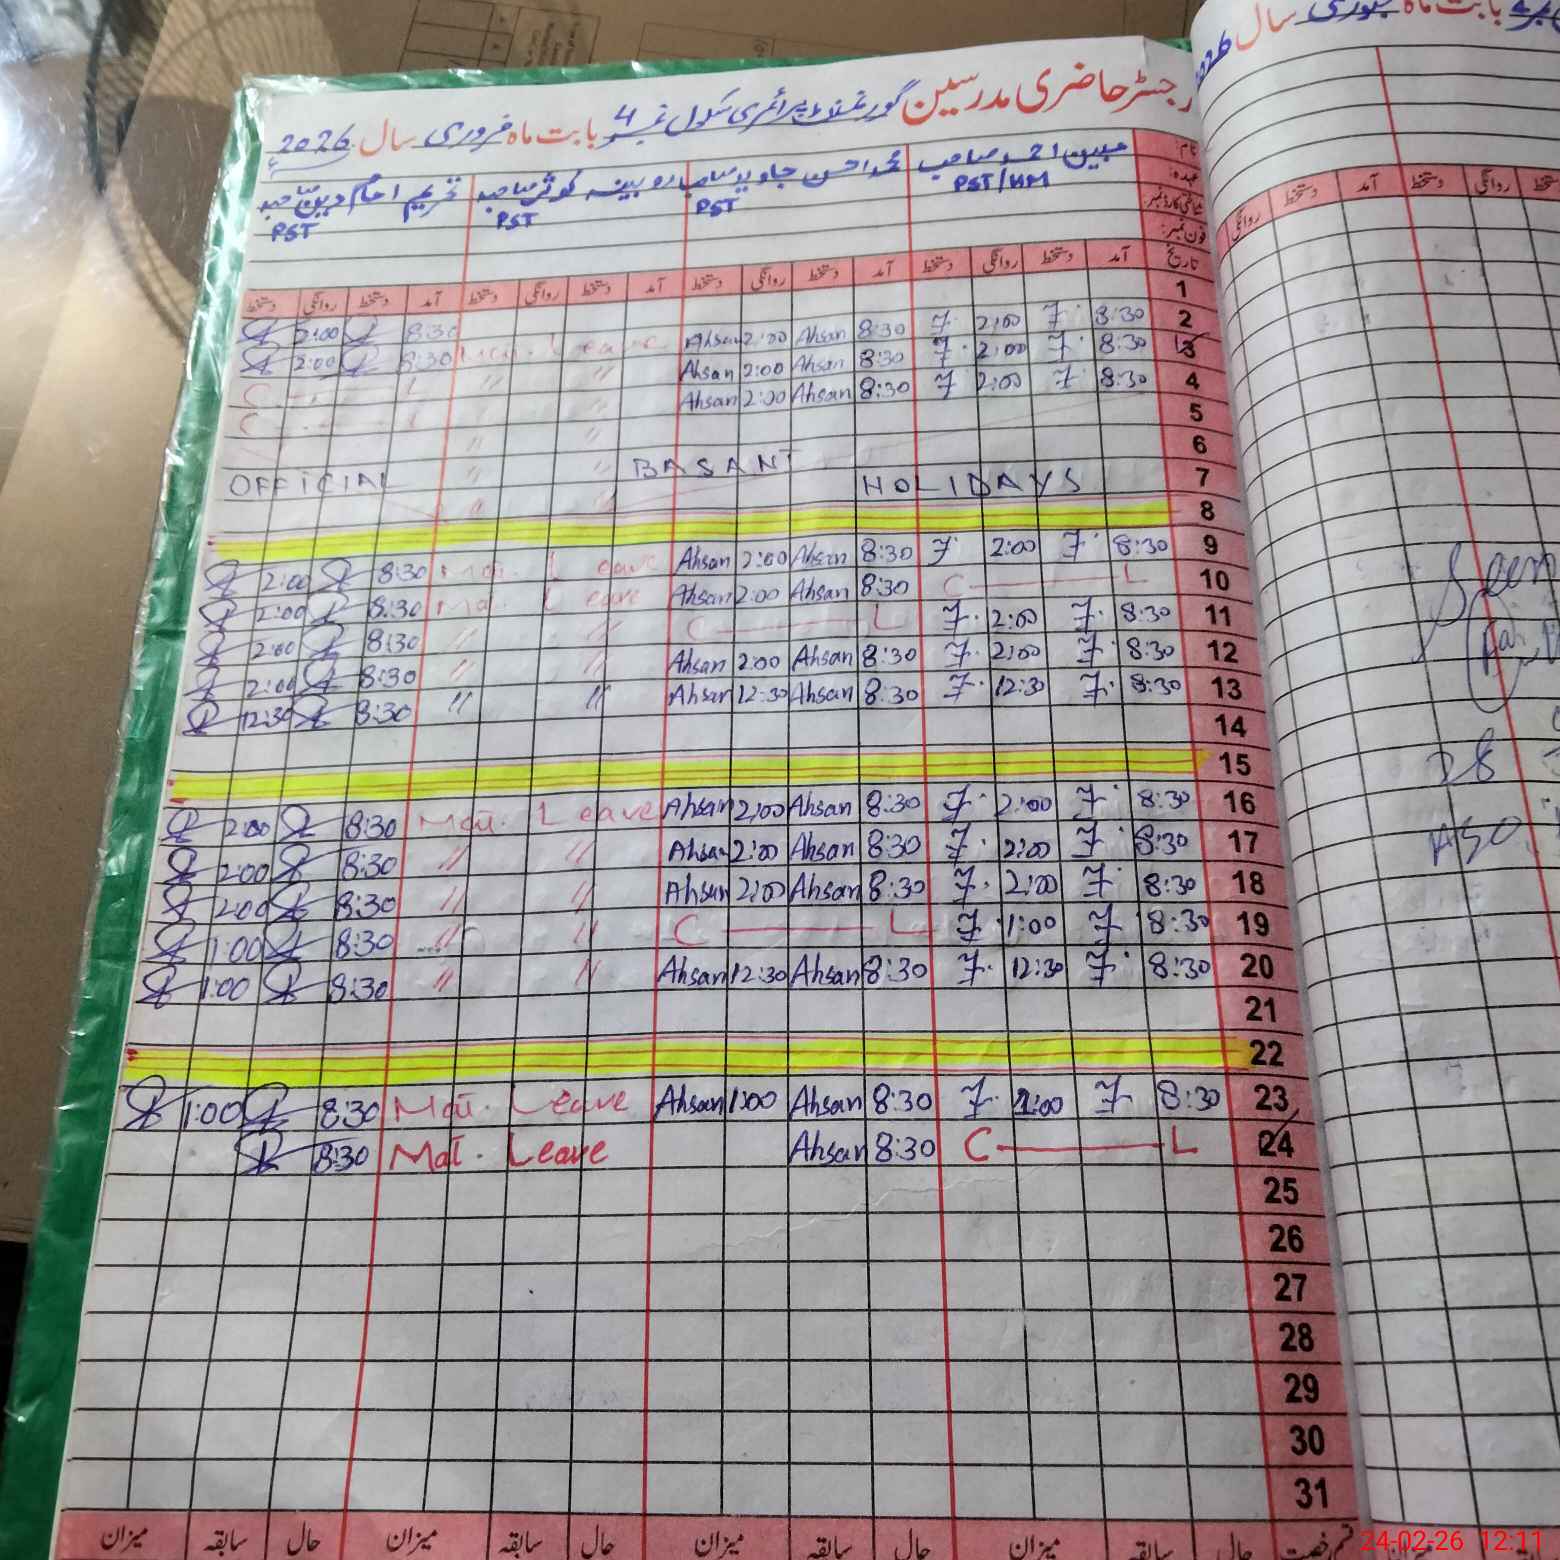 رجسٹر حاضری مدرسین گورنمنٹ پرائمری سکول نمبر 4 بابت ماہ فروری سال 2026ء
نام: مبین احمد صاحب محمد احسن جاوید صاحب روبینہ کوثر صاحبہ تحریم احتشام دین صاحبہ
عہدہ: PST/HM PST PST PST
شناختی کارڈ نمبر:
فون نمبر:
تاریخ آمد دستخط روانگی دستخط آمد دستخط روانگی دستخط آمد دستخط روانگی دستخط آمد دستخط روانگی دستخط
1
2:00 8:30 Mat. Leave Ahsan 2:00 Ahsan 8:30 7. 2:00 7. 8:30 2
2:00 8:30 " " Ahsan 2:00 Ahsan 8:30 7. 2:00 7. 8:30 3
C L " " Ahsan 2:00 Ahsan 8:30 7 2:00 7. 8:30 4
C L " " 5
" " 6
OFFICIAL BASANT HOLIDAYS 7
8
2:00 8:30 Mat. Leave Ahsan 2:00 Ahsan 8:30 7. 2:00 7. 8:30 9
2:00 8:30 Mat. Leave Ahsan 2:00 Ahsan 8:30 C L 10
2:00 8:30 " " C L 7. 2:00 7. 8:30 11
2:00 8:30 " " Ahsan 2:00 Ahsan 8:30 7. 2:00 7. 8:30 12
12:30 8:30 " " Ahsan 12:30 Ahsan 8:30 7. 12:30 7. 8:30 13
14
15
2:00 8:30 Mat. Leave Ahsan 2:00 Ahsan 8:30 7. 2:00 7. 8:30 16
2:00 8:30 " " Ahsan 2:00 Ahsan 8:30 7. 2:00 7. 8:30 17
2:00 8:30 " " Ahsan 2:00 Ahsan 8:30 7. 2:00 7. 8:30 18
1:00 8:30 " " C L 7. 1:00 7. 8:30 19
1:00 8:30 " " Ahsan 12:30 Ahsan 8:30 7. 12:30 7. 8:30 20
21
22
1:00 8:30 Mat. Leave Ahsan 1:00 Ahsan 8:30 7. 1:00 7 8:30 23
8:30 Mat. Leave Ahsan 8:30 C L 24
25
26
27
28
29
30
31
قسم رخصت حال سابقہ میزان حال سابقہ میزان حال سابقہ میزان حال سابقہ میزان
بابت ماہ جنوری سال 2026
دستخط روانگی دستخط آمد دستخط روانگی
Seen
28
24-02-26 12:11